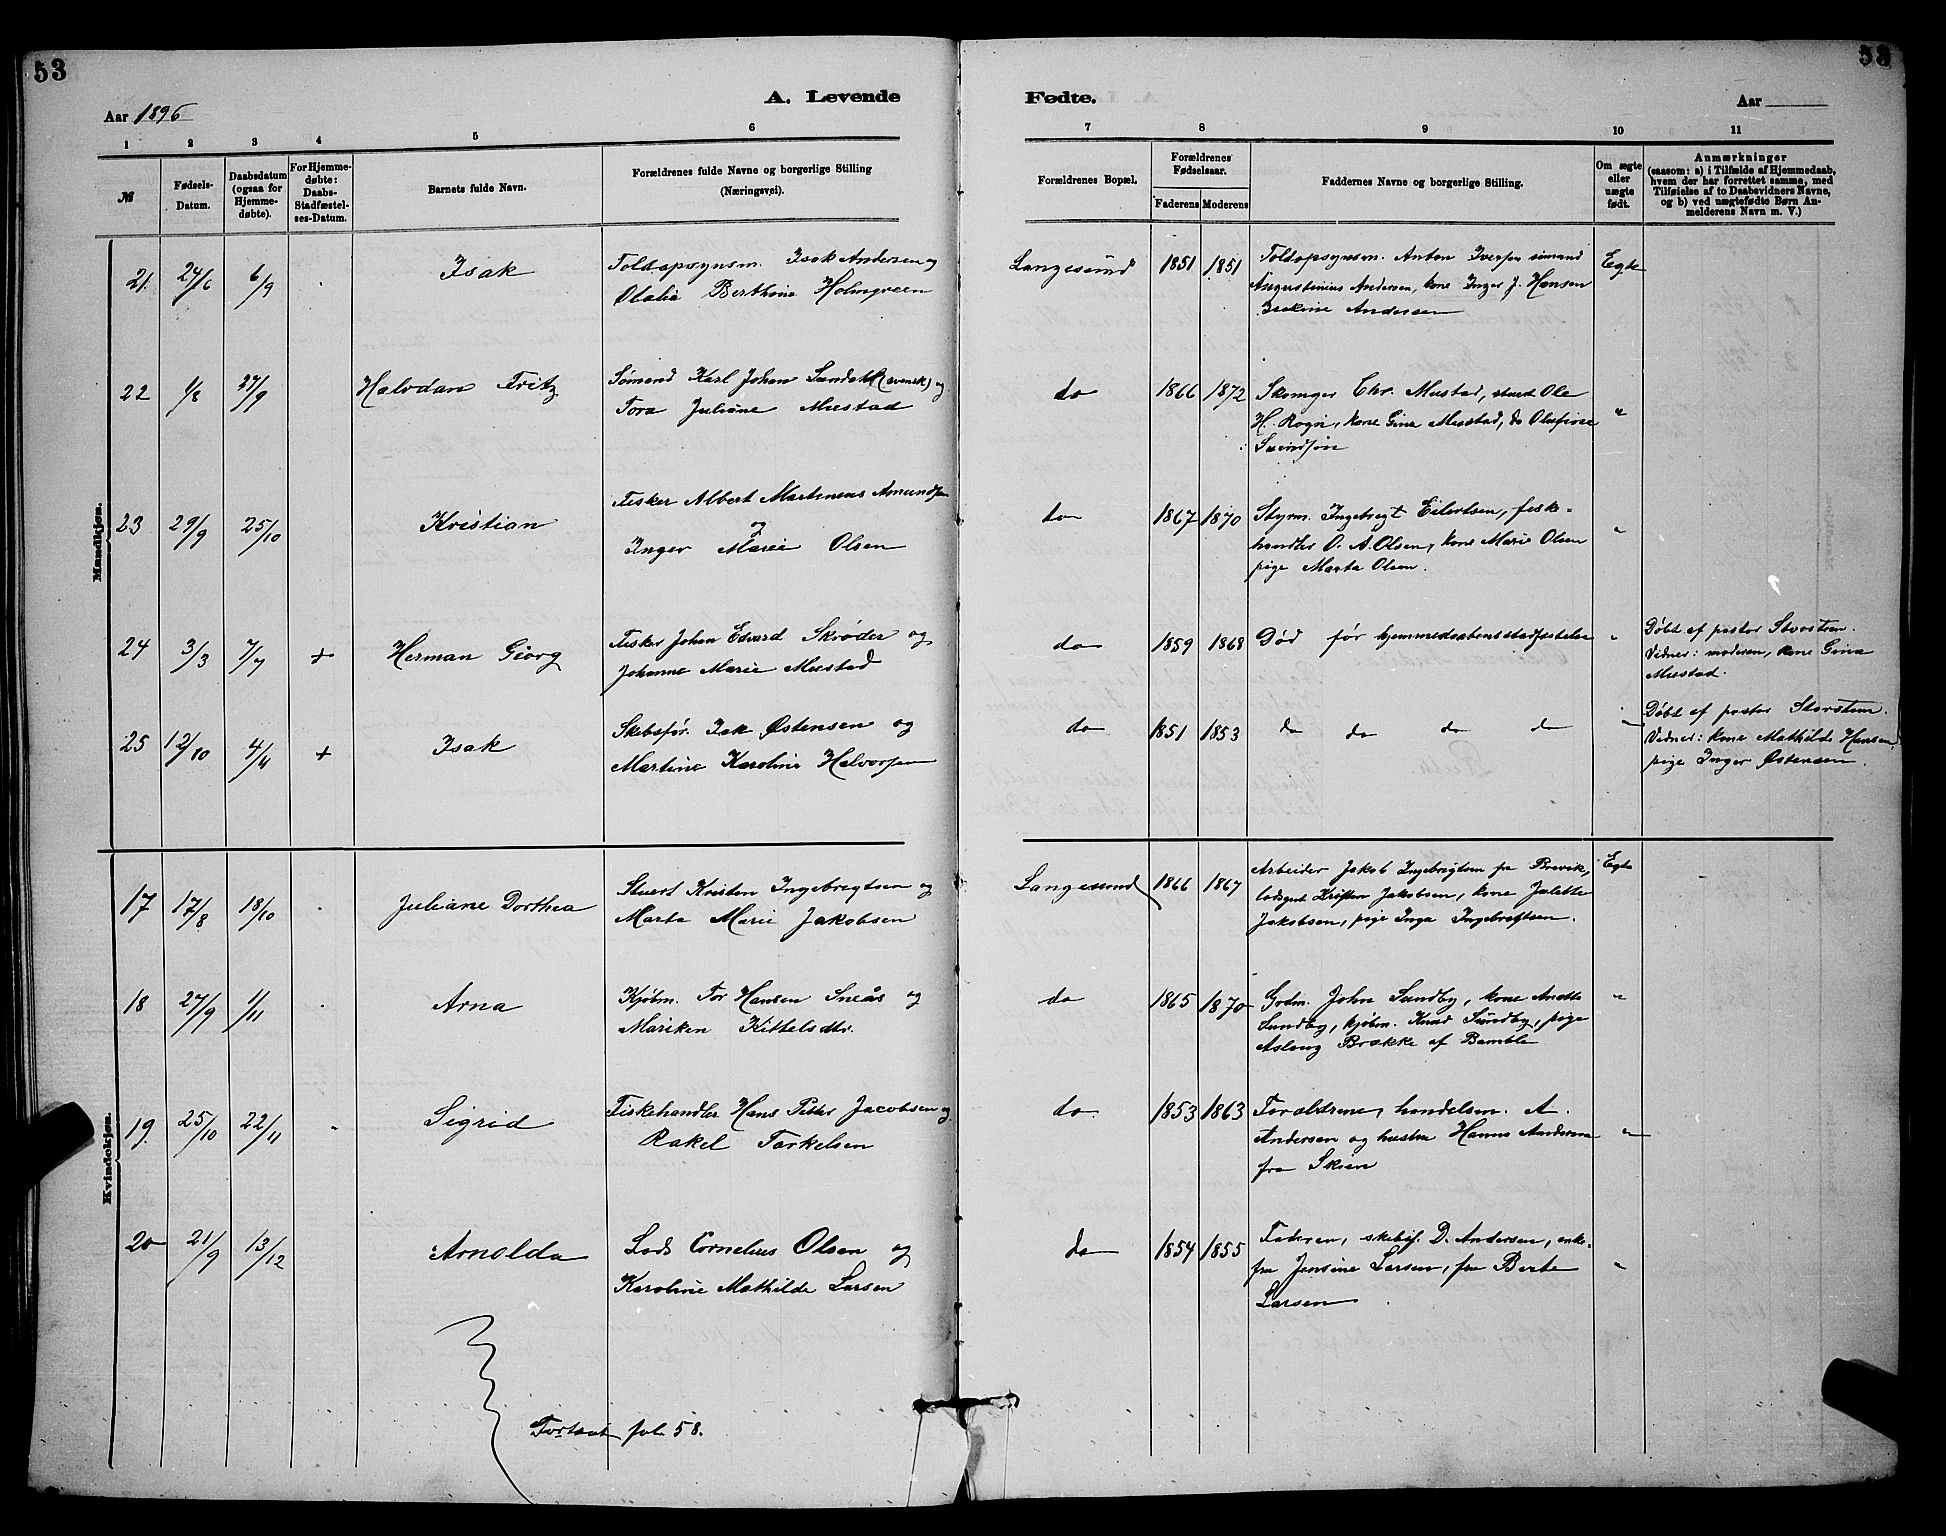 53
53
A. Levende
Fødte.
Aar 1896
Aar
1 2 3 4 5 6 7 8 9 10 11
№
Fødsels-Datum.
Daabsdatum (ogsaa for Hjemme-døbte).
For Hjemme-døbte: Daabs-Stadfæstel-ses-Datum.
Barnets fulde Navn.
Forældrenes fulde Navne og borgerlige Stilling (Næringsvei).
Forældrenes Bopæl.
Forældrenes Fødselsaar.
Faderens Moderens
Faddernes Navne og borgerlige Stilling.
Om ægte eller uægte født.
Anmærkninger
(saasom: a) i Tilfælde af Hjemmedaab, hvem der har forrettet samme, med Tilføielse af to Daabsvidners Navne, og b) ved uægtefødte Børn An-melderens Navn m. V.)
Mandkjøn.
21 24/6 6/9 Isak
Toldopsynsm. Isak Andersen og
Otalia Berthine Holmgreen
Langesund 1851 1851
Toldopsynsm. Anton Iversen sømand
Andersen, kone Inger J. Hansen
Andersen
Egte
22 1/8 27/9 Halvdan Fritz
Sømand Karl Johan Sundahl (svensk) og
Tora Juliane Mustad
do 1866 1872
Skomger Chr. Mustad, stuert Ole
H. Rogn, kone Gina Mustad, do Olufine
"
23 29/9 25/10 Kristian
Fisker Albert Martenius Amundsen
og
Inger Marie Olsen
do 1867 1870
Styrm. Ingebregt Eilertsen, fiske-
handler O. A. Olsen, kone Marie Olsen
pige Marta Olsen.
"
24 3/3 7/7 + Herman Georg
Fisker Johan Edvard Skrøder og
Johanne Marie Mustad
do 1859 1868
Død før hjemmedaabens stadfestelse
"
Døbt af pastor Storsteen.
Vidner: moderen, kone Gina
Mustad.
25 12/10 4/11 + Isak
Skibsfør. Isak Østensen og
Martine Karoline Halvorsen
do 1851 1853
do do do do
"
Døbt af pastor Storsteen.
Vidner: kone Mathilde Hansen,
pige Inger Østensen.
Kvindekjøn.
17 17/8 18/10 Juliane Dorthea
Stuert Kristen Ingebregtsen og
Marta Marie Jakobsen
Langesund 1866 1867
Arbeider Jakob Ingebrigtsen fra Brevik,
Kristen Jakobsen, kone Julette
Jakobsen, pige Inga Ingebretsen.
Egte
18 27/9 1/11 Arna
Kjøbm. Tor Hansen Sneås og
Mariken Kittelsdtr.
do 1865 1870
Grdm. John Sundby, kone Anette
Sundby, kjøbm. Knud Sundby, pige
Aslaug Brække af Bamble
"
19. 25/10 22/11 Sigrid
Fiskehandler Hans Peter Jacobsen og
Rakel Torkelsen
do 1853 1863
Forældrene, handelsm. A.
Andersen og hustru Hanna Andersen
fra Skien
"
20 21/9 13/12 Arnolda
Lods Cornelius Olsen og
Karoline Mathilde Larsen
do 1854 1855
Faderen, skibsf. D. Andersen, enke-
fru Jensine Larsen, fru Berte
Larsen
"
Fortsat fol 58.